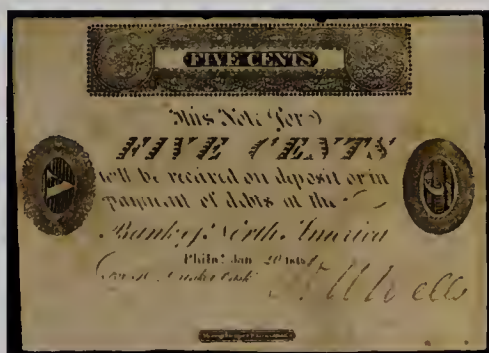 FIVE CENTS
This Note for
FIVE CENTS
will be received on deposit or in
payment of debts at the
Bank of North America
Philad Jan 20
V
5
Wells